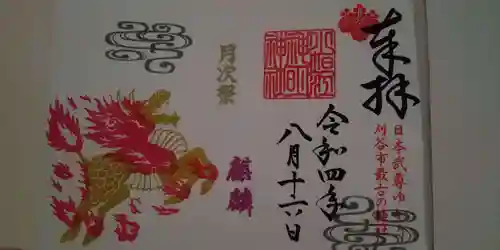 奉拝
日本武尊ゆ
刈谷市最古の
令和四年
八月十六日
月次祭
麒麟